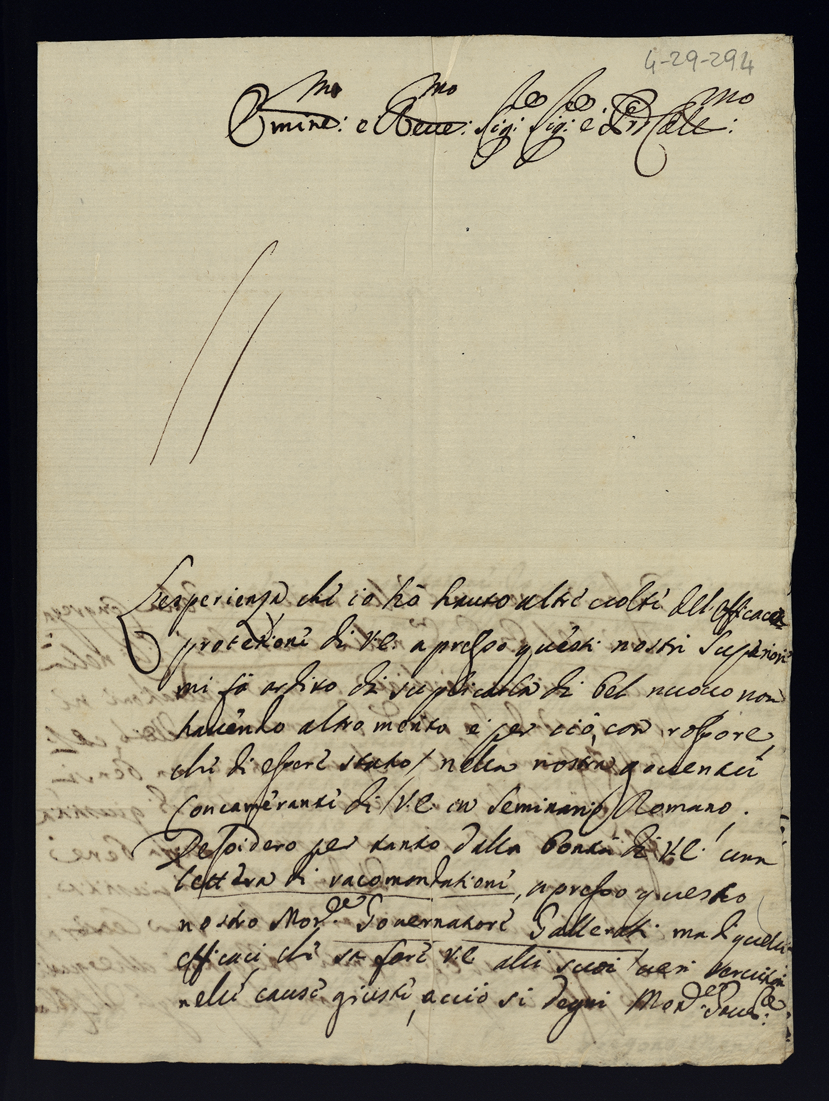 4-29-294
Emin:mo e Reue:mo Sig: Sig: e Pri Coll:mo
L'esperienza chi io hò hauto altri uolti del efficace
protetioni di V.E: apresso questi nostri Superiori
mi fà ardito di suplicarla di bel nuouo non
hauendo altro merito e per ciò, con rossore,
chi di esseri stato nella nostra giouentù
Concameranti di V.E in Seminario Romano.
Desidero per tanto dalla bontà di V.E. una
lettera di racomandationi, apresso questo
nostro Mon:re Gouernatore Gallerati ma di quelli
efficaci chi
V.E alli suoi ueri
nelli causi giusti, acciò si degni Mon:re Gou:re